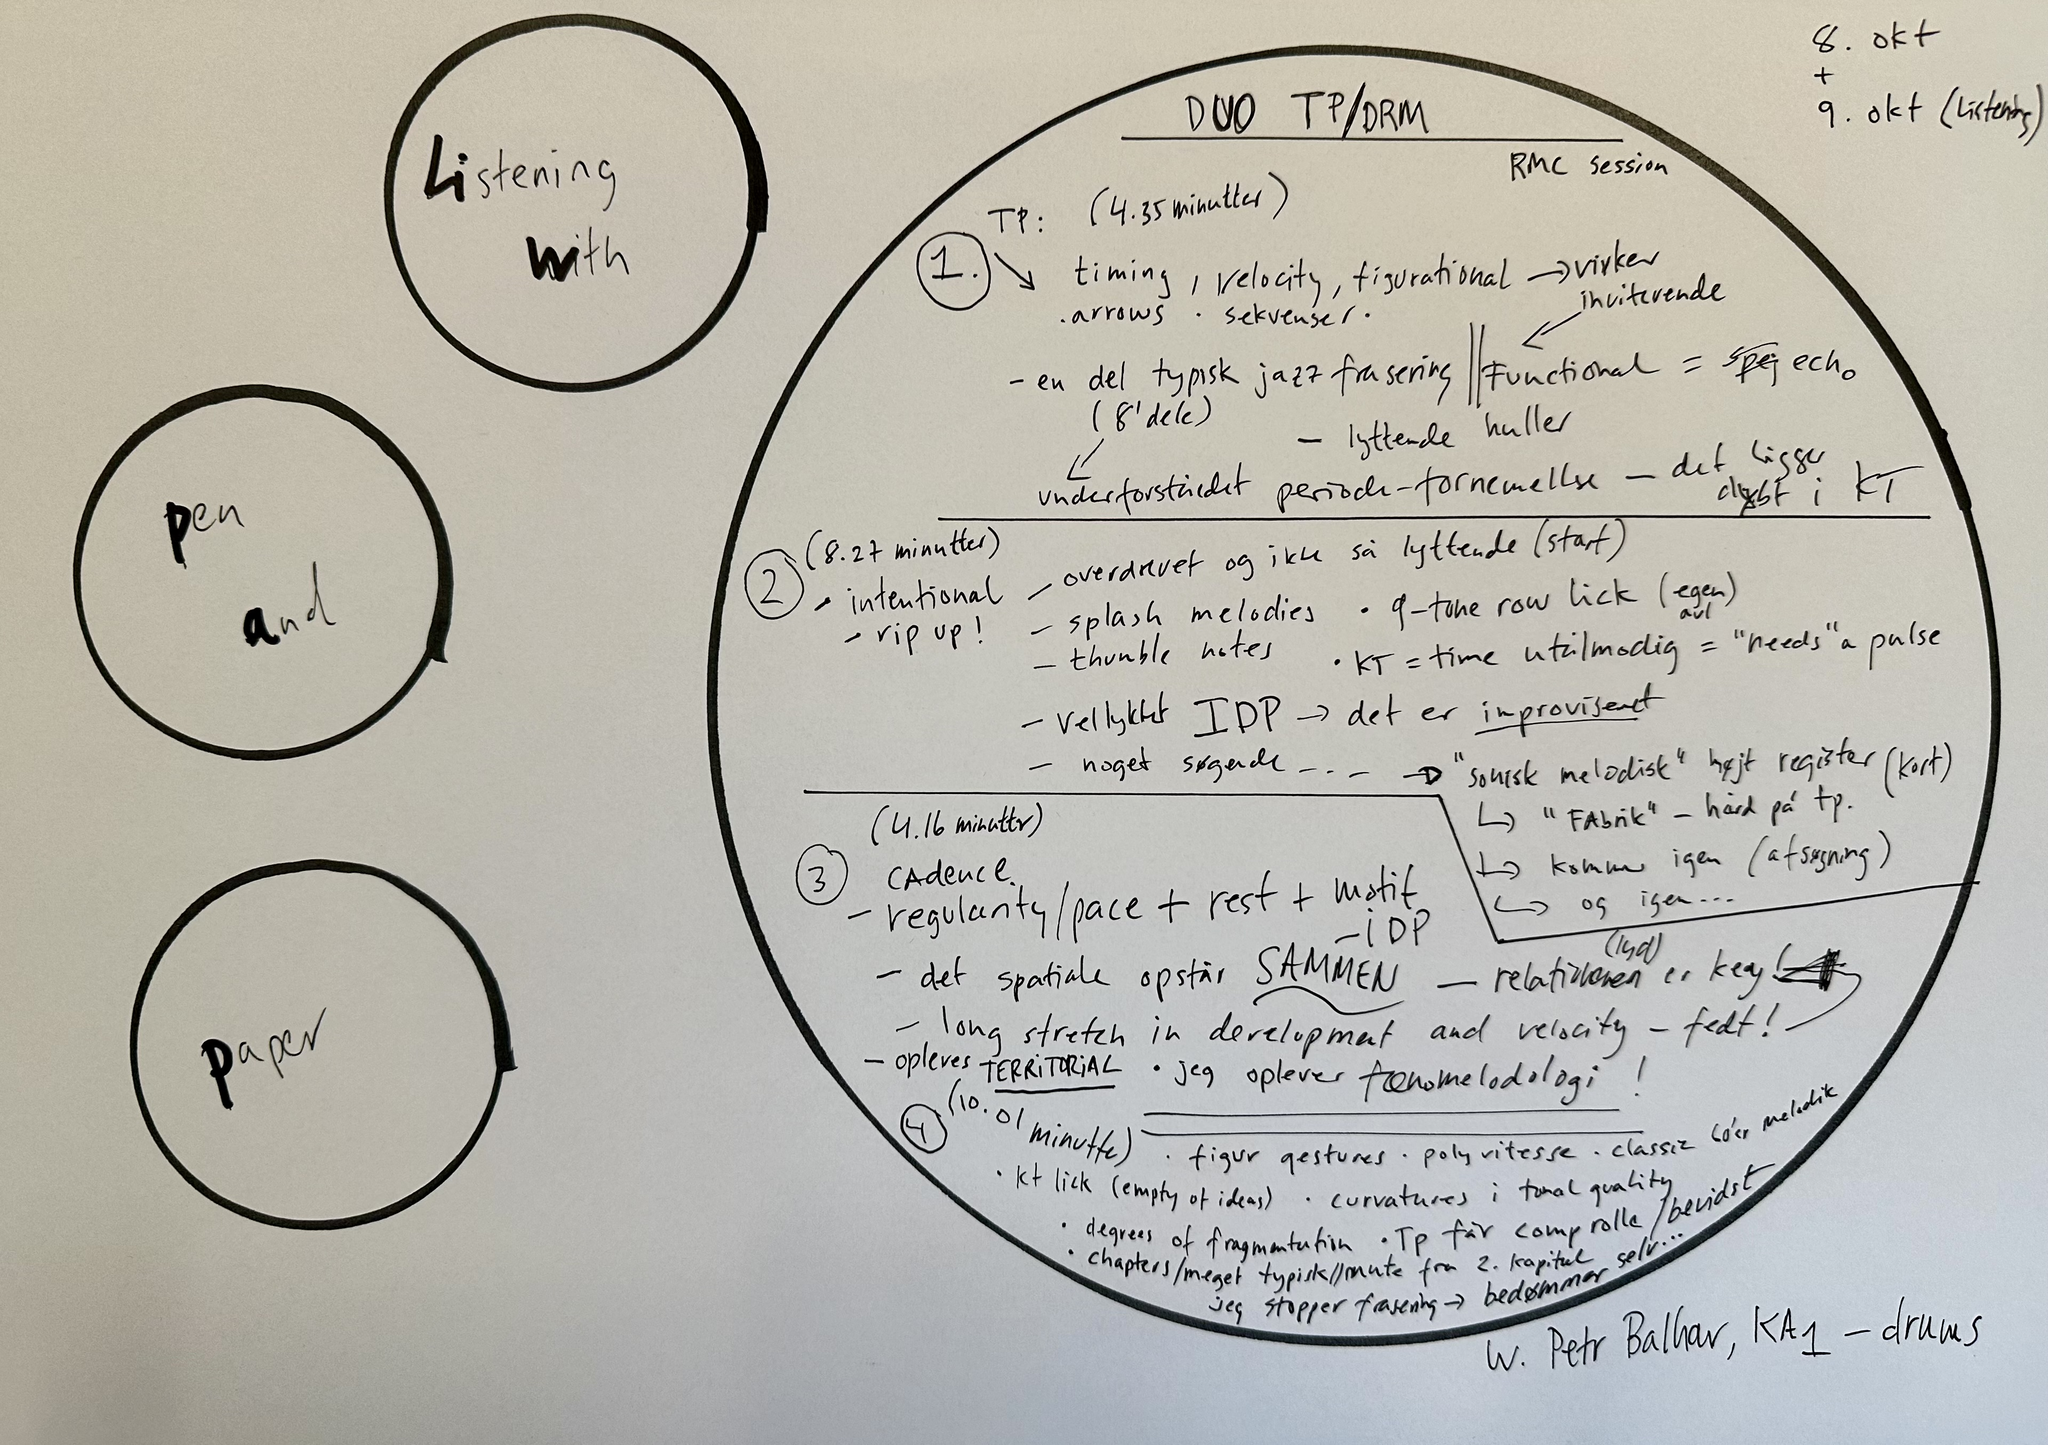 8. okt
+
9. okt (Listening)
Listening
with
pen
and
paper
DUO TP/DRM
RMC session
TP: (4.35 minutter)
1.
timing, velocity, figurational → virker
inviterende
.arrows · sekvenser.
- en del typisk jazz frasering || Functional = echo
(8'dele)
- lyttende huller
underforstået periode-fornemmelse - det ligger
dybt i KT
2 (8.27 minutter)
- intentional
- rip up!
- overdrevet og ikke så lyttende (start)
- splash melodies · 9-tone row lick (egen
avl)
- thumble notes · KT = time utålmodig = "needs" a pulse
- vellykket IDP → det er improviseret
- noget søgende --- → "sonisk melodisk" højt register (kort)
↳ "FAbrik" - hård på tp.
↳ kommer igen (afsøgning)
↳ og igen...
(4.16 minutter)
3 CAdence
- regularity/pace + rest + motif
- i DP
- det spatiale opstår SAMMEN - relationen (lyd) er key!
- long stretch in development and velocity - fedt!
- opleves TERRITORIAL · jeg oplever fænomelodologi !
4 (10.01
minutter) · figur gestures · polyvitesse · classic 60'er melodik
· kt lick (empty of ideas) · curvatures i tonal quality
· degrees of fragmentation · Tp får comp rolle /bevidst
· chapters/meget typisk//mute fra 2. kapitel
jeg stopper frasering → bedømmer selv...
W. Petr Balhar, KA1 - drums